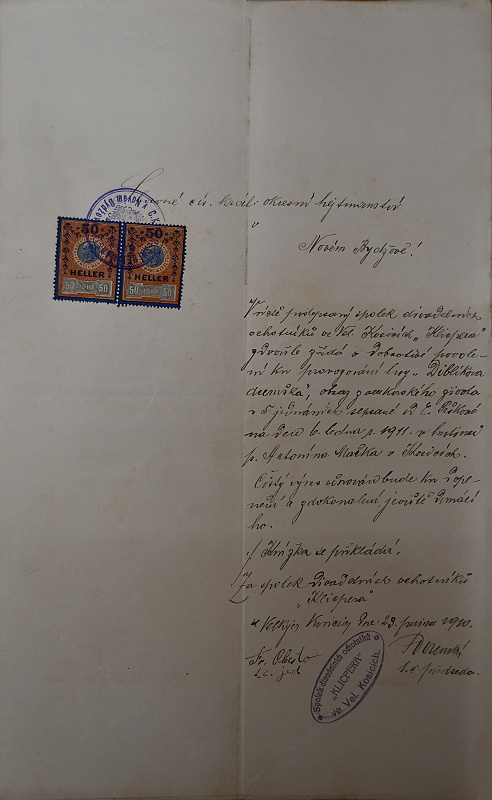 Slavné cís. král. okresní hejtmanství
v
Novém Bydžově!
50
50
HELLER
HELLER
50 1910 50
50 1910 50
podepsaný spolek divadelních
ochotníků ve Vel. Kosicích „Klicpera"
zdvořile žádá o dobrotivé povole-
ní ku provozování hry „Diblíkova
dceruška", obraz z venkovského života
v 5 jednáních sepsané od E. Peškové
na den 6. ledna r. 1911. v hostinci
p. Antonína Mačka v Kosicích.
Čistý výnos věnován bude ku dopl-
nění a zdokonalení jeviště domácí
ho.
Knížka se přikládá.
Za spolek divadelních ochotníků
„Klicpera"
Velkých Kosicích dne 23. 1910.
Fr.
t. č. předseda.
Spolek divadelních ochotníků
„KLICPERA"
ve Vel. Kosicích.